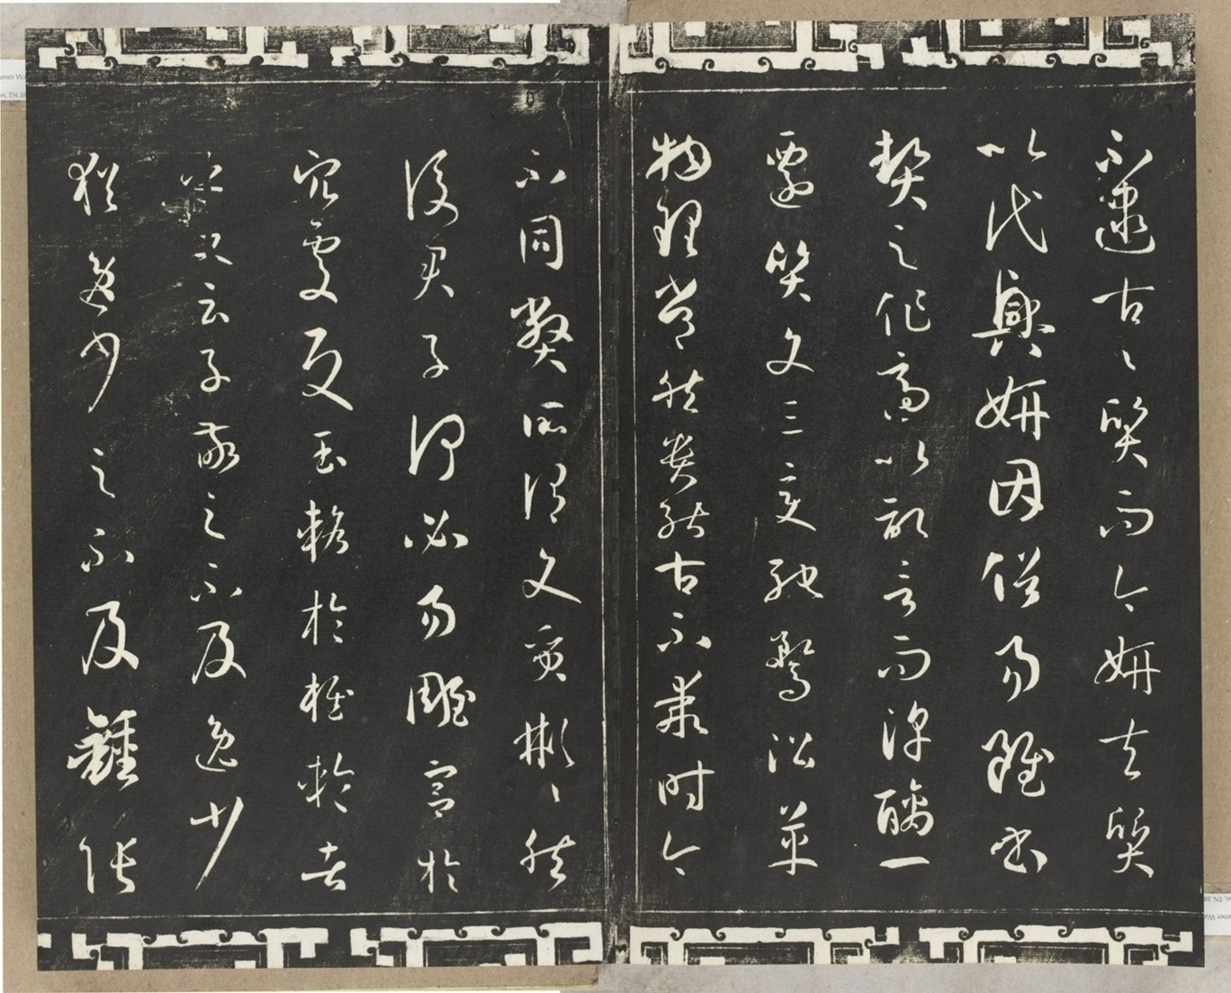 不逮古々質而今妍夫質
以代興妍因俗易雖書
契之作適以記言而淳醨一
遷質文三變馳騖沿革
物理常然貴能古不乖時今
不同弊所謂文質彬々然
後君子何必易雕宮於
穴處反玉輅於椎輪者
乎又云子敬之不及逸少
猶逸少之不及鍾張